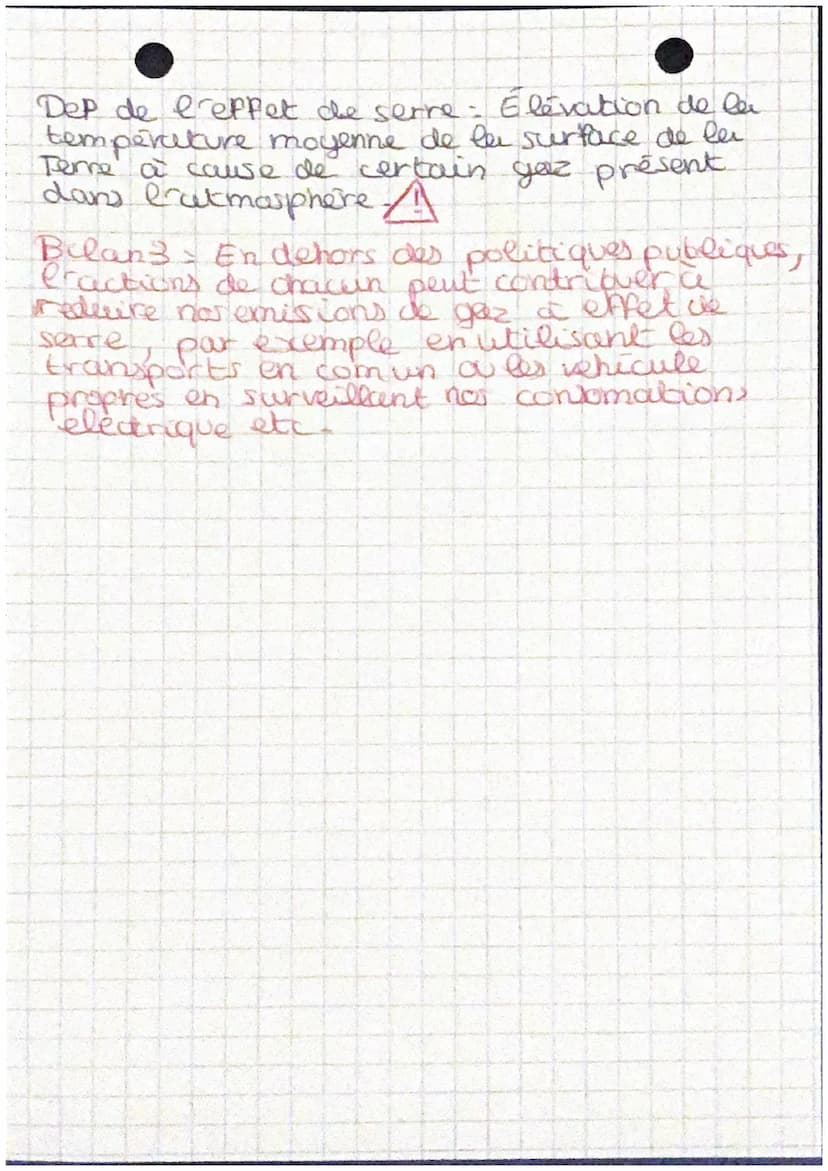 Def de l'effet de serre : Élévation de la
température moyenne de la surface de la
Terre à cause de certain gaz présent
dans l'atmosphère.
Bilan 3 : En dehors des politiques publiques,
l'actions de chacun peut contribuer à
reduire nos emisions de gaz à effet de
serre, par exemple en utilisant les
transports en comun a les vehicule
propres en surveillant nos consomations
électrique etc.